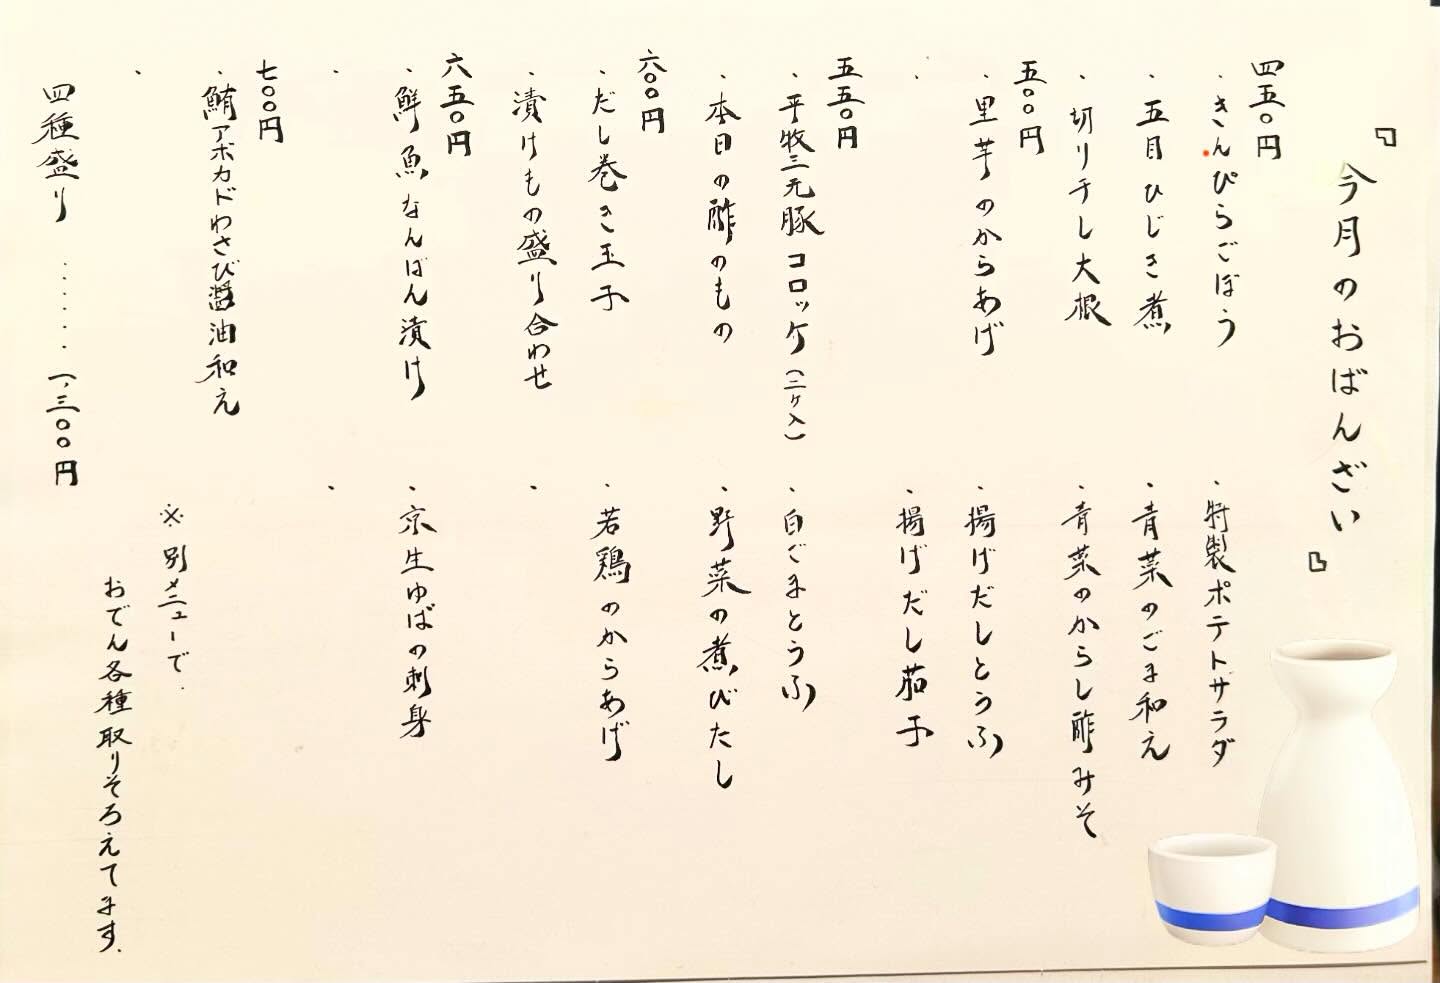 『今月のおばんざい』
四五〇円
・きんぴらごぼう
・特製ポテトサラダ
・五目ひじき煮
・青菜のごま和え
・切り干し大根
・青菜のからし酢みそ
五〇〇円
・里芋のからあげ
・揚げだしとうふ
・揚げだし茄子
五五〇円
・平牧三元豚コロッケ（二ヶ入）
・白ごまとうふ
・本日の酢のもの
・野菜の煮びたし
六〇〇円
・だし巻き玉子
・若鶏のからあげ
・漬けもの盛り合わせ
六五〇円
・鮮魚なんばん漬け
・京生ゆばの刺身
七〇〇円
・鮪アボカドわさび醤油和え
四種盛り ・・・・・・ 一、三〇〇円
※別メニューで、
おでん各種取りそろえてます。